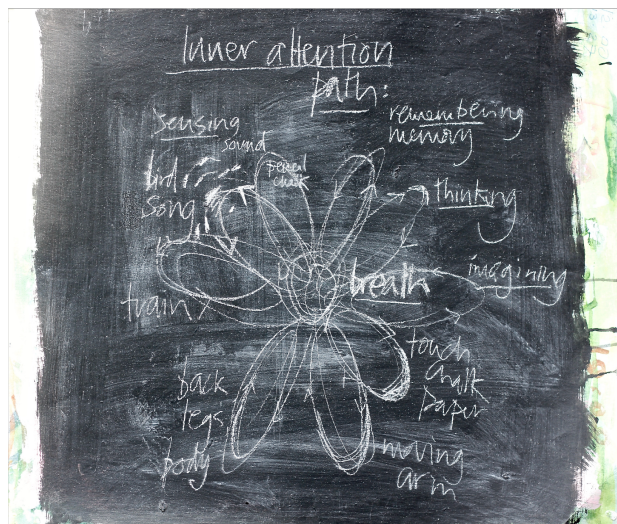 Inner attention
path:
sensing
sound
bird
song
pencil
chalk
remembering
memory
thinking
imagining
breath
train
touch
chalk
paper
back
legs
body
moving
arm